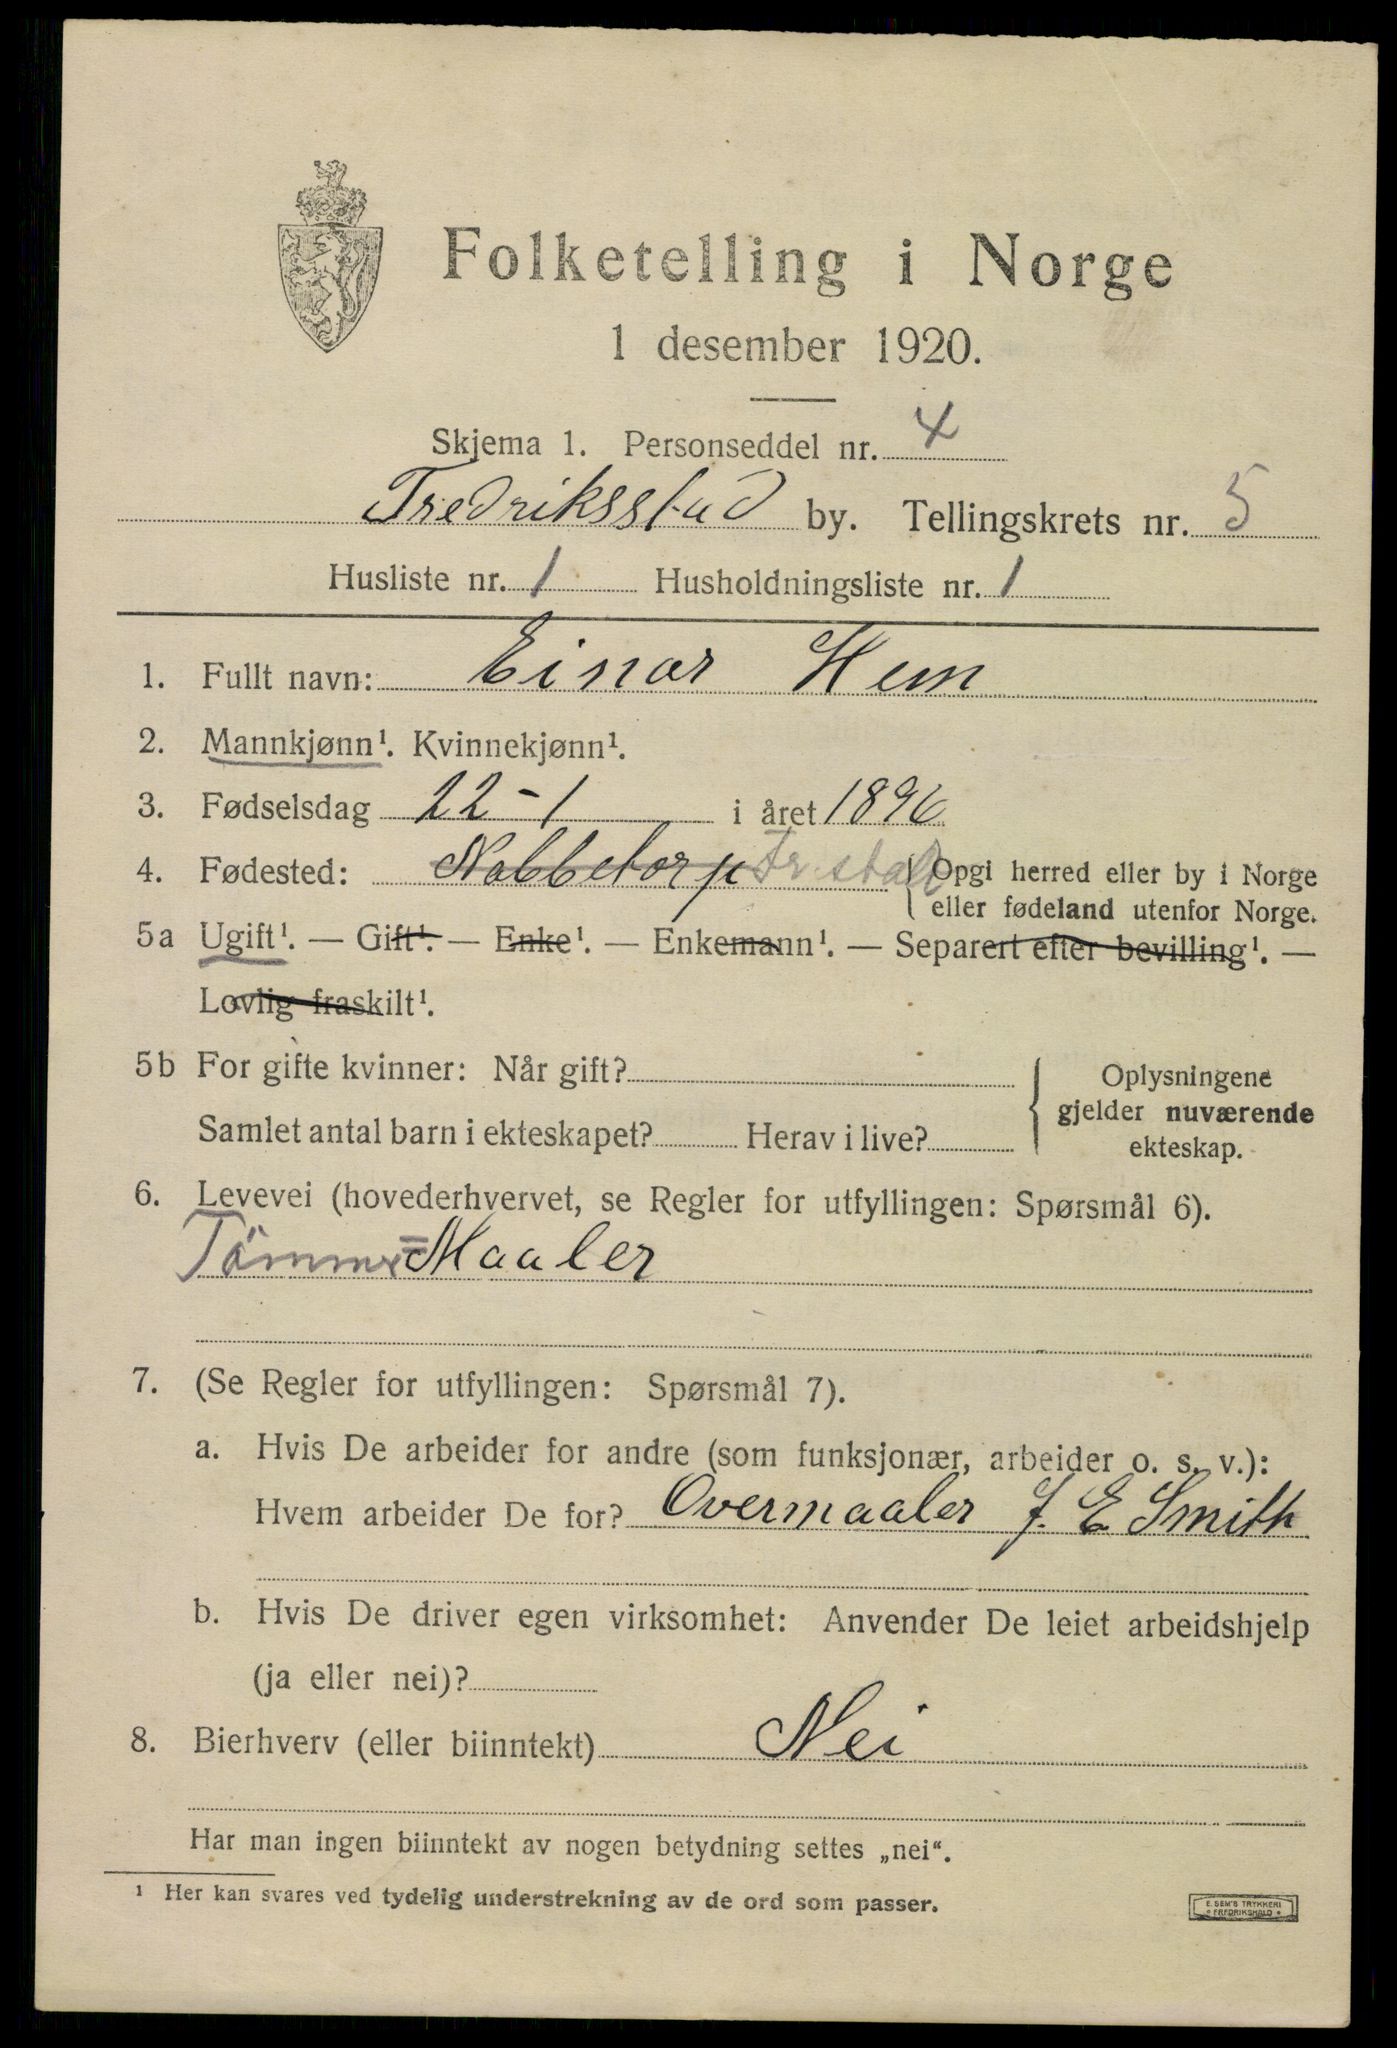 Folketelling i Norge
1 desember 1920.
Skjema 1. Personseddel nr. 4
Fredriksstad by. Tellingskrets nr. 5
Husliste nr. 1 Husholdningsliste nr. 1
1. Fullt navn: Einar Hem
2. Mannkjønn¹. Kvinnekjønn¹.
3. Fødselsdag 22-1 i året 1896
4. Fødested: Nabbetorp Fr.stad { Opgi herred eller by i Norge
eller fødeland utenfor Norge.
5a Ugift¹. — Gift¹. — Enke¹. — Enkemann¹. — Separert efter bevilling¹. —
Lovlig fraskilt¹.
5b For gifte kvinner: Når gift? { Oplysningene
gjelder nuværende
Samlet antal barn i ekteskapet? Herav i live?
ekteskap.
6. Levevei (hovederhvervet, se Regler for utfyllingen: Spørsmål 6).
Tömmer=Maaler
7. (Se Regler for utfyllingen: Spørsmål 7).
a. Hvis De arbeider for andre (som funksjonær, arbeider o. s. v.):
Hvem arbeider De for? Overmaaler J. E Smith
b. Hvis De driver egen virksomhet: Anvender De leiet arbeidshjelp
(ja eller nei)?
8. Bierhverv (eller biinntekt) Nei
Har man ingen biinntekt av nogen betydning settes „nei“.
¹ Her kan svares ved tydelig understrekning av de ord som passer.
E. SEM'S TRYKKERI
FREDRIKSHALD